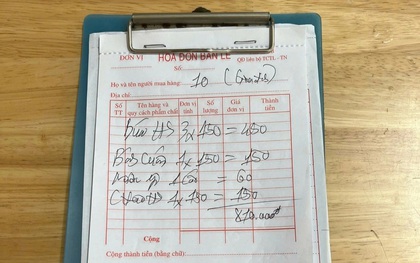 ĐƠN VỊ HÓA ĐƠN BÁN LẺ QĐ Liên bộ TCTL - TN
Số
Họ và tên người mua hàng: 10
Địa chỉ:
Số TT Tên hàng và quy cách phẩm chất Đơn vị tính Số lượng Giá đơn vị Thành tiền
Bún HS 3 x 150 = 450
1 x 150 = 150
= 60
Cháo HS 1 x 150 = 150
810.000đ
Cộng
Cộng thành tiền (bằng chữ)